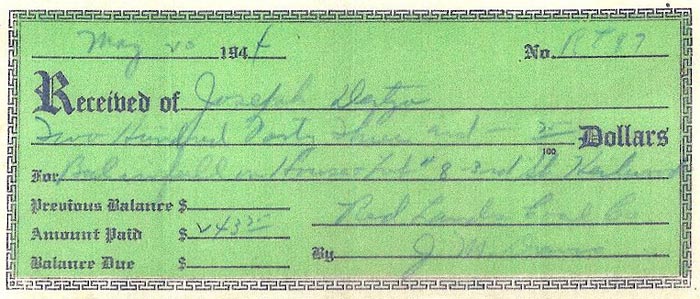 May 20 1944 No. RT 97
Received of Joseph
Two Hundred Forty Three and 25/100 Dollars
For Balance on House + Lot # 8 - 3rd St
Previous Balance $
Red Lands Coal Co
Amount Paid $ 243.25
By J. M.
Balance Due $